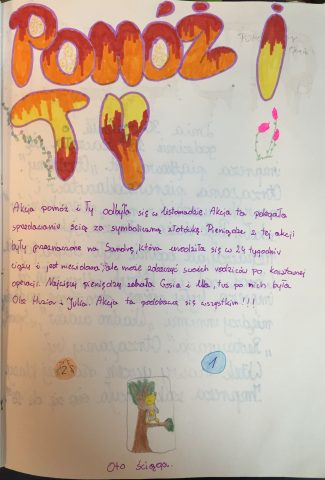 POMÓŻ I
TY
Akcja pomóż i Ty odbyła się w listopadzie. Akcja ta polegała
sprzedawanie ściąg za symboliczną złotówkę. Pieniądze z tej akcji
były przeznaczone na Sandrę, która urodziła się w 24 tygodniu
ciąży i jest niewidoma, ale może zobaczyć swoich rodziców po kosztownej
operacji. Najwięcej pieniędzy zebrała Gosia i Ula, tuż po nich była
Ola Huzior i Julka. Akcja ta podobała się wszystkim!!!
2
1
Oto ściąga.